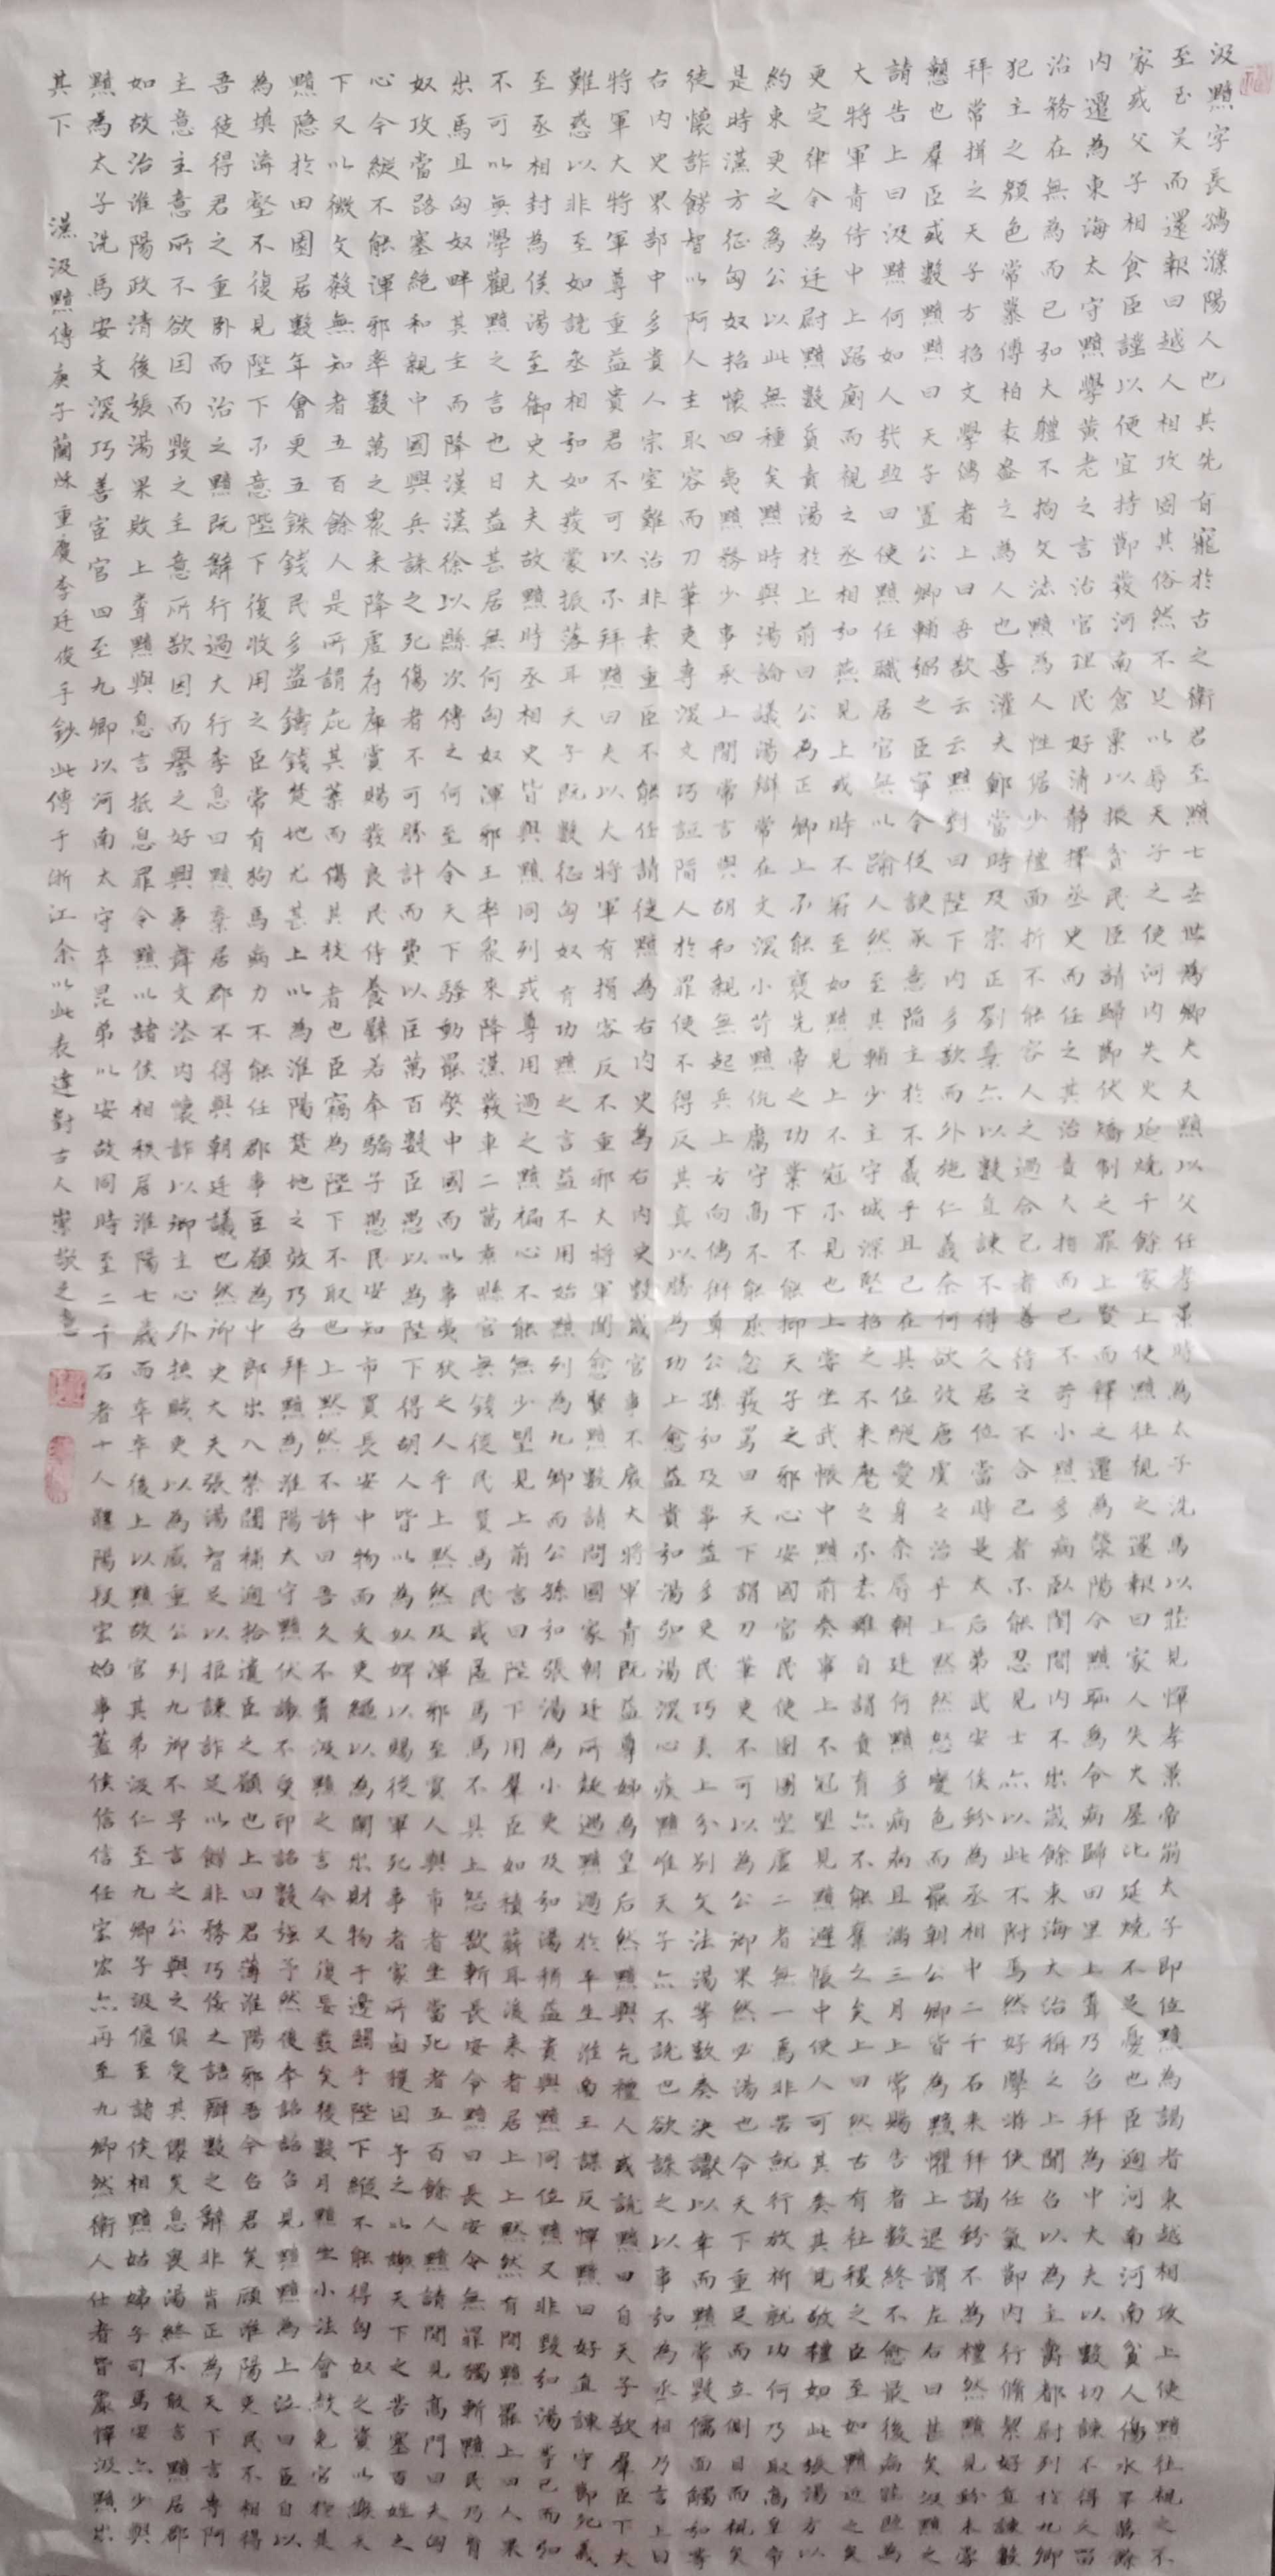 汲黯字長孺濮陽人也其先有寵於古之衛君至黯七世世為卿大夫黯以父任孝景時為太子洗馬以莊見憚孝景帝崩太子即位黯為謁者東越相攻上使黯往視之不
至至吳而還報曰越人相攻固其俗然不足以辱天子之使河內失火延燒千餘家上使黯往視之還報曰家人失火屋比延燒不足憂也臣過河南河南貧人傷水旱萬餘
家或父子相食臣謹以便宜持節發河南倉粟以振貧民臣請歸節伏矯制之罪上賢而釋之遷為滎陽令黯恥為令病歸田里上聞乃召拜為中大夫以數切諫不得久留
內遷為東海太守黯學黃老之言治官理民好清靜擇丞史而任之其治責大指而已不苛小黯多病臥閨閤內不出歲餘東海大治稱之上聞召以為主爵都尉列於九卿
治務在無為而已弘大體不拘文法黯為人性倨少禮面折不能容人之過合己者善待之不合己者不能忍見士亦以此不附焉然好學游俠任氣節內行脩絜好直諫數
犯主之顏色常慕傅柏袁盎之為人也善灌夫鄭當時及宗正劉棄亦以數直諫不得久居位當是時太后弟武安侯蚡為丞相中二千石來拜謁蚡不為禮然黯見蚡未嘗
拜常揖之天子方招文學儒者上曰吾欲云云黯對曰陛下內多欲而外施仁義奈何欲效唐虞之治乎上默然怒變色而罷朝公卿皆為黯懼上退謂左右曰甚矣汲黯之
戇也羣臣或數黯黯曰天子置公卿輔弼之臣寧令從諛承意陷主於不義乎且已在其位縱愛身奈辱朝廷何黯多病病且滿三月上常賜告者數終不愈最後病莊助為
請告上曰汲黯何如人哉助曰使黯任職居官無以踰人然至其輔少主守城深堅招之不來麾之不去雖自謂賁育亦不能奪之矣上曰然古有社稷之臣至如黯近之矣
大將軍青侍中上踞廁而視之丞相弘燕見上或時不冠至如黯見上不冠不見也上嘗坐武帳中黯前奏事上不冠望見黯避帳中使人可其奏其見敬禮如此張湯方以
更定律令為廷尉黯數質責湯於上前曰公為正卿上不能褒先帝之功業下不能抑天子之邪心安國富民使囹圄空虛二者無一焉非苦就行放析就功何乃取高皇帝
約束更之為公以此無種矣黯時與湯論議湯辯常在文深小苛黯伉厲守高不能屈忿發罵曰天下謂刀筆吏不可以為公卿果然必湯也令天下重足而立側目而視矣
是時漢方征匈奴招懷四夷黯務少事承上閒常言與胡和親無起兵上方向儒術尊公孫弘及事益多吏民巧弄上分別文法湯等數奏決讞以幸而黯常毀儒面觸弘等
徒懷詐飾智以阿人主取容而刀筆吏專深文巧詆陷人於罪使不得反其真以勝為功上愈益貴弘湯弘湯深心疾黯唯天子亦不說也欲誅之以事弘為丞相乃言上曰
右內史界部中多貴人宗室難治非素重臣不能任請徙黯為右內史為右內史數歲官事不廢大將軍青既益尊姊為皇后然黯與亢禮人或說黯曰自天子欲羣臣下大
將軍大將軍尊重益貴君不可以不拜黯曰夫以大將軍有揖客反不重邪大將軍聞愈賢黯數請問國家朝廷所疑遇黯過於平生淮南王謀反憚黯曰好直諫守節死義
難惑以非至如說丞相弘如發蒙振落耳天子既數征匈奴有功黯之言益不用始黯列為九卿而公孫弘張湯為小吏及弘湯稍益貴與黯同位黯又非毀弘湯等已而弘
至丞相封為侯湯至御史大夫故黯時丞相史皆與黯同列或尊用過之黯褊心不能無少望見上前言曰陛下用羣臣如積薪耳後來者居上上默然有間黯罷上曰人果
不可以無學觀黯之言也日益甚居無何匈奴渾邪王率眾來降漢發車二萬乘縣官無錢從民貰馬民或匿馬馬不具上怒欲斬長安令黯曰長安令無罪獨斬黯民乃肯
出馬且匈奴畔其主而降漢漢徐以縣次傳之何至令天下騷動罷獘中國而以事夷狄之人乎上默然及渾邪至賈人與市者坐當死者五百餘人黯請間見高門曰夫匈
奴攻當路塞絕和親中國興兵誅之死傷者不可勝計而費以巨萬百數臣愚以為陛下得胡人皆以為奴婢以賜從軍死事者家所鹵獲因予之以謝天下之苦塞百姓之
心今縱不能渾邪率數萬之眾來降虛府庫賞賜發良民侍養譬若奉驕子愚民安知市買長安中物而文吏繩以為闌出財物于邊關乎陛下縱不能得匈奴之資以謝天
下又以微文殺無知者五百餘人是所謂庇其葉而傷其枝者也臣竊為陛下不取也上默然不許曰吾久不聞汲黯之言今又復妄發矣後數月黯坐小法會赦免官於是
黯隱於田園居數年會更五銖錢民多盜鑄錢楚地尤甚上以為淮陽楚地之郊乃召拜黯為淮陽太守黯伏謝不受印詔數強予然後奉詔詔召見黯黯為上泣曰臣自以
為填溝壑不復見陛下不意陛下復收用之臣常有狗馬病力不能任郡事臣願為中郎出入禁闥補過拾遺臣之願也上曰君薄淮陽邪吾今召君矣顧淮陽吏民不相得
吾徒得君之重臥而治之黯既辭行過大行李息曰黯棄居郡不得與朝廷議也然御史大夫張湯智足以拒諫詐足以飾非務巧佞之語辯數之辭非肯正為天下言專阿
主意主意所不欲因而毀之主意所欲因而譽之好興事舞文法內懷詐以御主心外挾賊吏以為威重公列九卿不早言之公與之俱受其僇矣息畏湯終不敢言黯居郡
如故治淮陽政清後張湯果敗上聞黯與息言抵息罪令黯以諸侯相秩居淮陽七歲而卒卒後上以黯故官其弟汲仁至九卿子汲偃至諸侯相黯姑姊子司馬安亦少與
黯為太子洗馬安文深巧善宦官四至九卿以河南太守卒昆弟以安故同時至二千石者十人濮陽段宏始事蓋侯信信任宏宏亦再至九卿然衛人仕者皆嚴憚汲黯出
其下
漢汲黯傳庚子蘭秋重慶李廷俊手鈔此傳于浙江余以此表達對古人崇敬之意